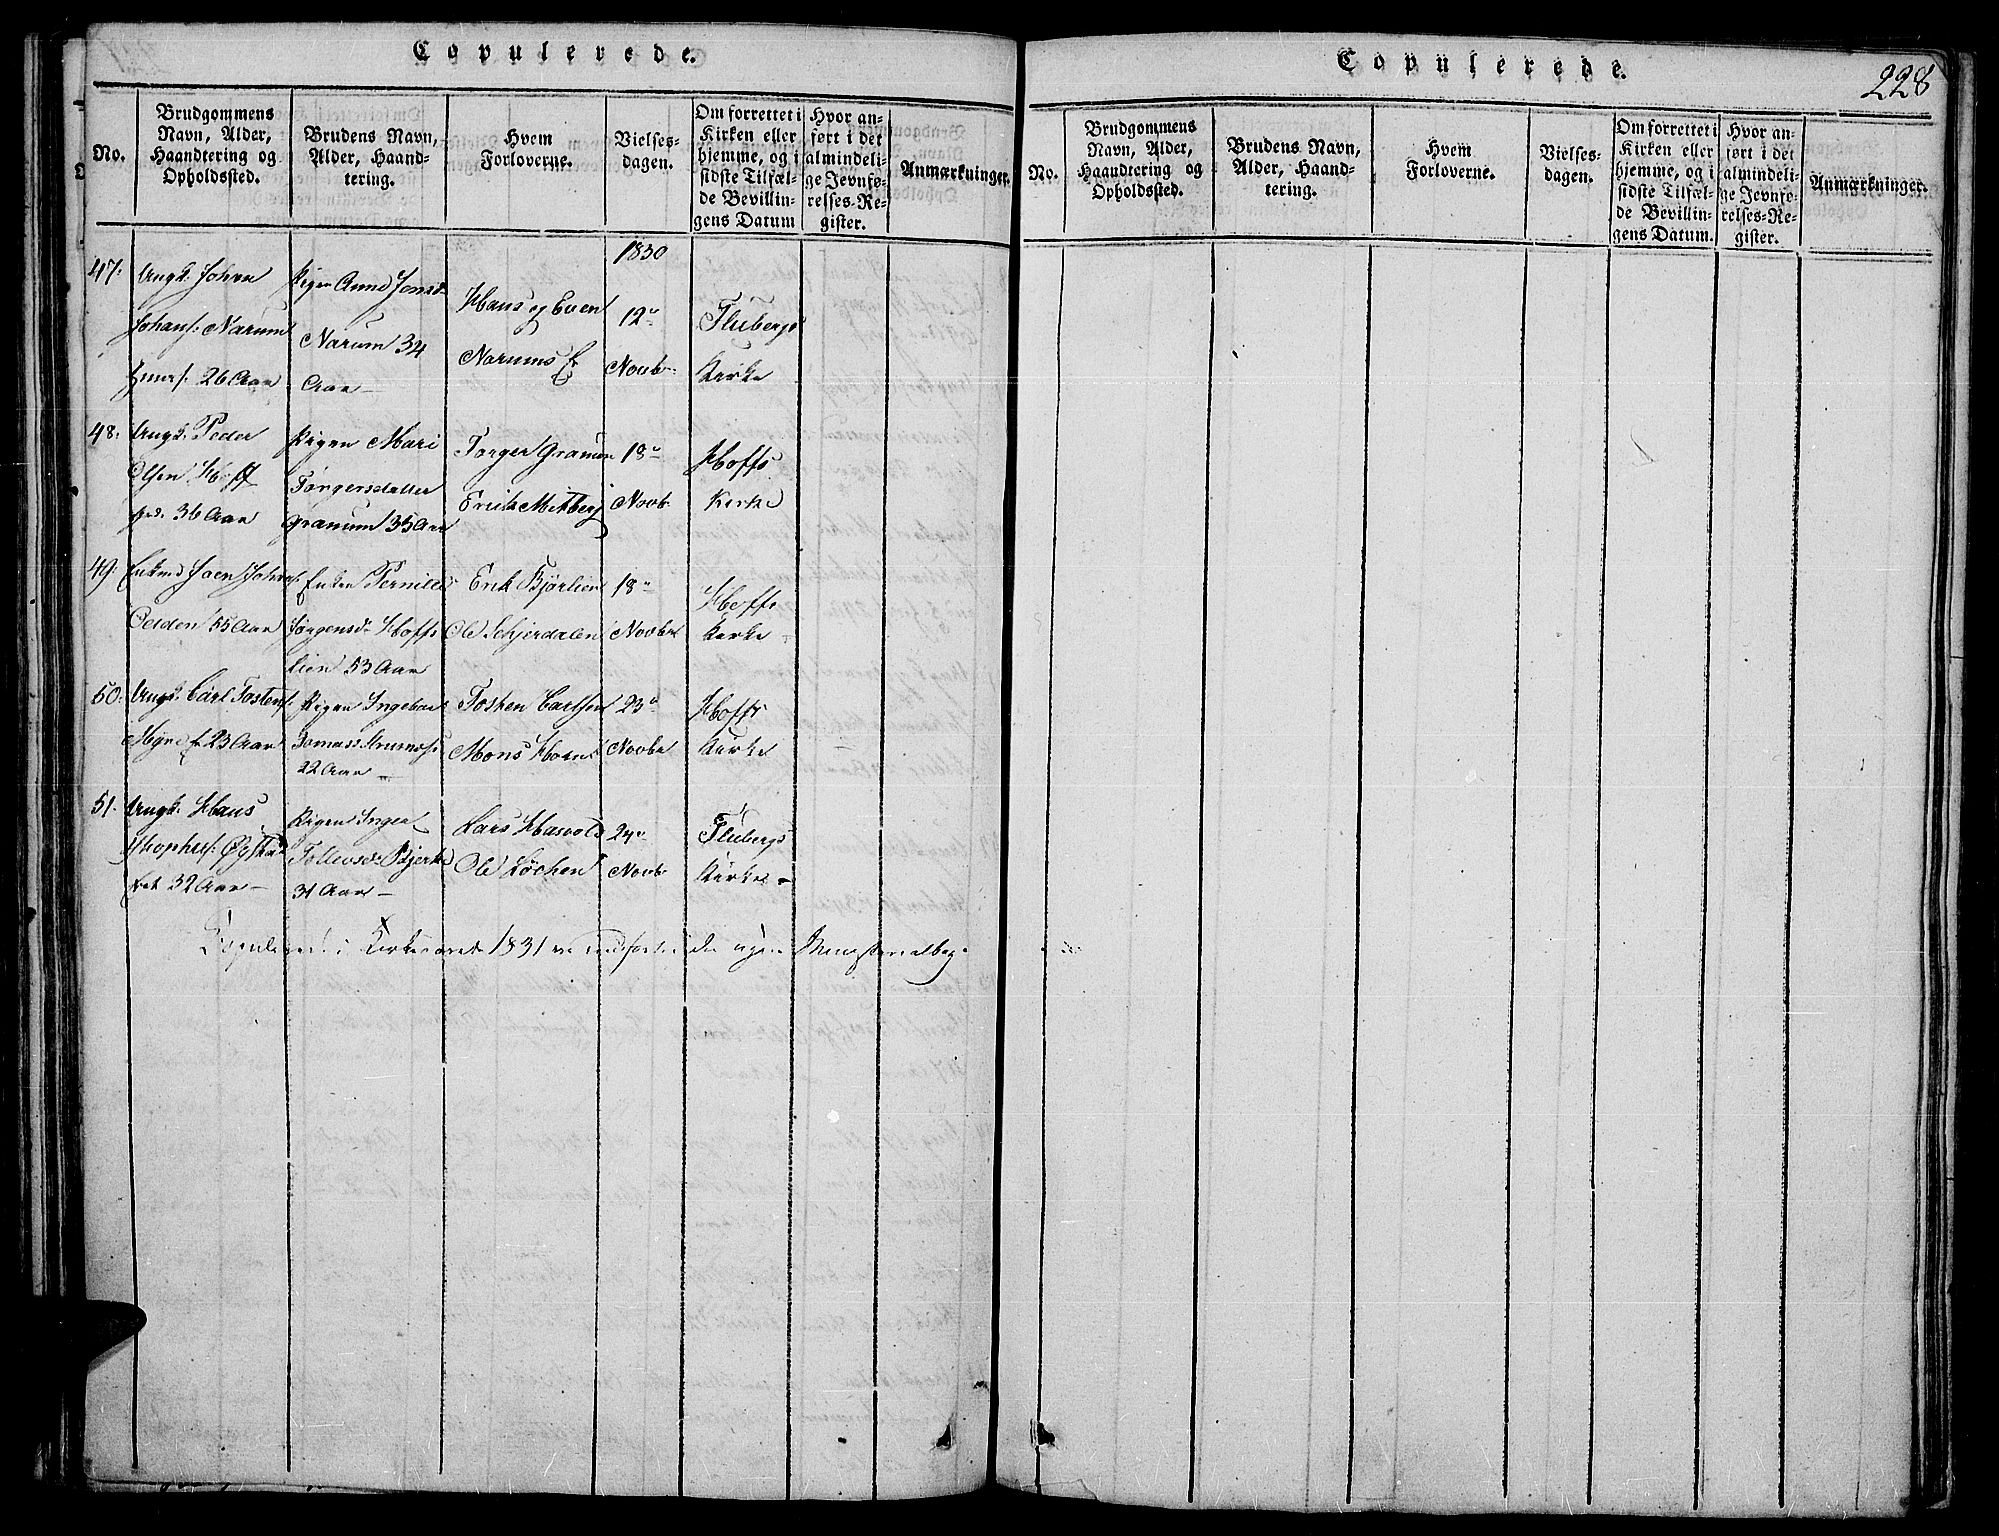 Copulerede.
No.
Brudgommens
Navn, Alder,
Haandtering og
Opholdssted.
Brudens Navn,
Alder, Haand-
tering.
Hvem
Forloverne.
Vielses-
dagen.
Om forrettet i
Kirken eller
hjemme, og i
sidste Tilfæl-
de Bevillin-
gens Datum
Hvor an-
ført i det
almindeli-
ge Jevnfø-
relses-Re-
gister.
Anmærkninger.
1830
47.
Ungk. Johan
Johans. Narum
26 Aar
Pigen Anne Jensd.
Narum 34
Aar
Hans og Even
Narums E
12te
Novb.
Flubergs
Kirke
48.
Ungk. Peder
Olsen Hoff
36 Aar
Pigen Mari
Torgersdatter
Granum 35 Aar
Torger Granum
Erik Mitberg
18de
Novb.
Hoffs
Kirke
49.
Enkmd Joen Johns.
Odden 55 Aar
Enken Pernille
Jørgensd. Hoffs
lien 53 Aar
Erik Bjørlien
Ole Schjerdalen
18de
Novbr
Hoffs
Kirke
50.
Ungk. Carl Tostens.
Myre E 23 Aar
Pigen Ingebor
22 Aar
Tosten Carlsen
Mons
23de
Novbr
Hoffs
Kirke
51.
Ungk. Hans
32 Aar
Pigen Inger
Tollevsd. Bjerke
31 Aar
Lars Hasvold
Ole Løchen
24de
Novb.
Flubergs
Kirke
Copulerede i Kirkeaaret 1831 ere indførte i den nye Ministerialbog
Copulerede.
228
No.
Brudgommens
Navn, Alder,
Haandtering og
Opholdssted.
Brudens Navn,
Alder, Haand-
tering.
Hvem
Forloverne.
Vielses-
dagen.
Om forrettet i
Kirken eller
hjemme, og i
sidste Tilfæl-
de Bevillin-
gens Datum.
Hvor an-
ført i det
almindeli-
ge Jevnfø-
relses-Re-
gister.
Anmærkninger.